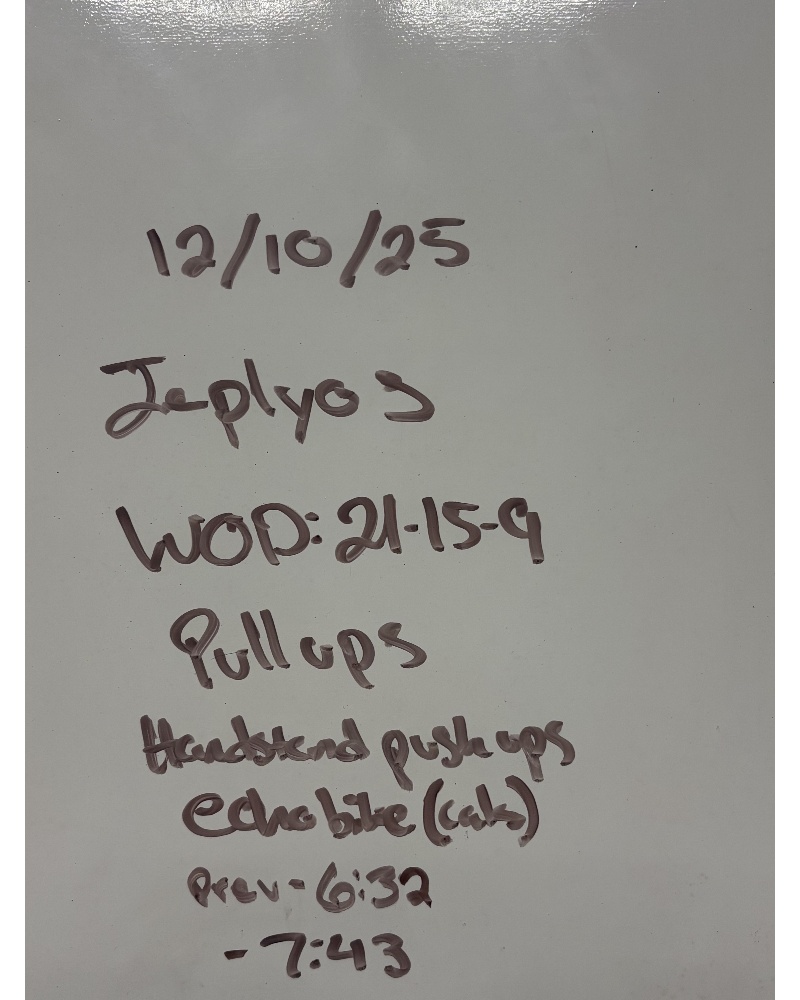 12/10/25
Jeplyos
WOD: 21-15-9
Pull ups
Handstand push ups
echo bike (cals)
Prev - 6:32
- 7:43